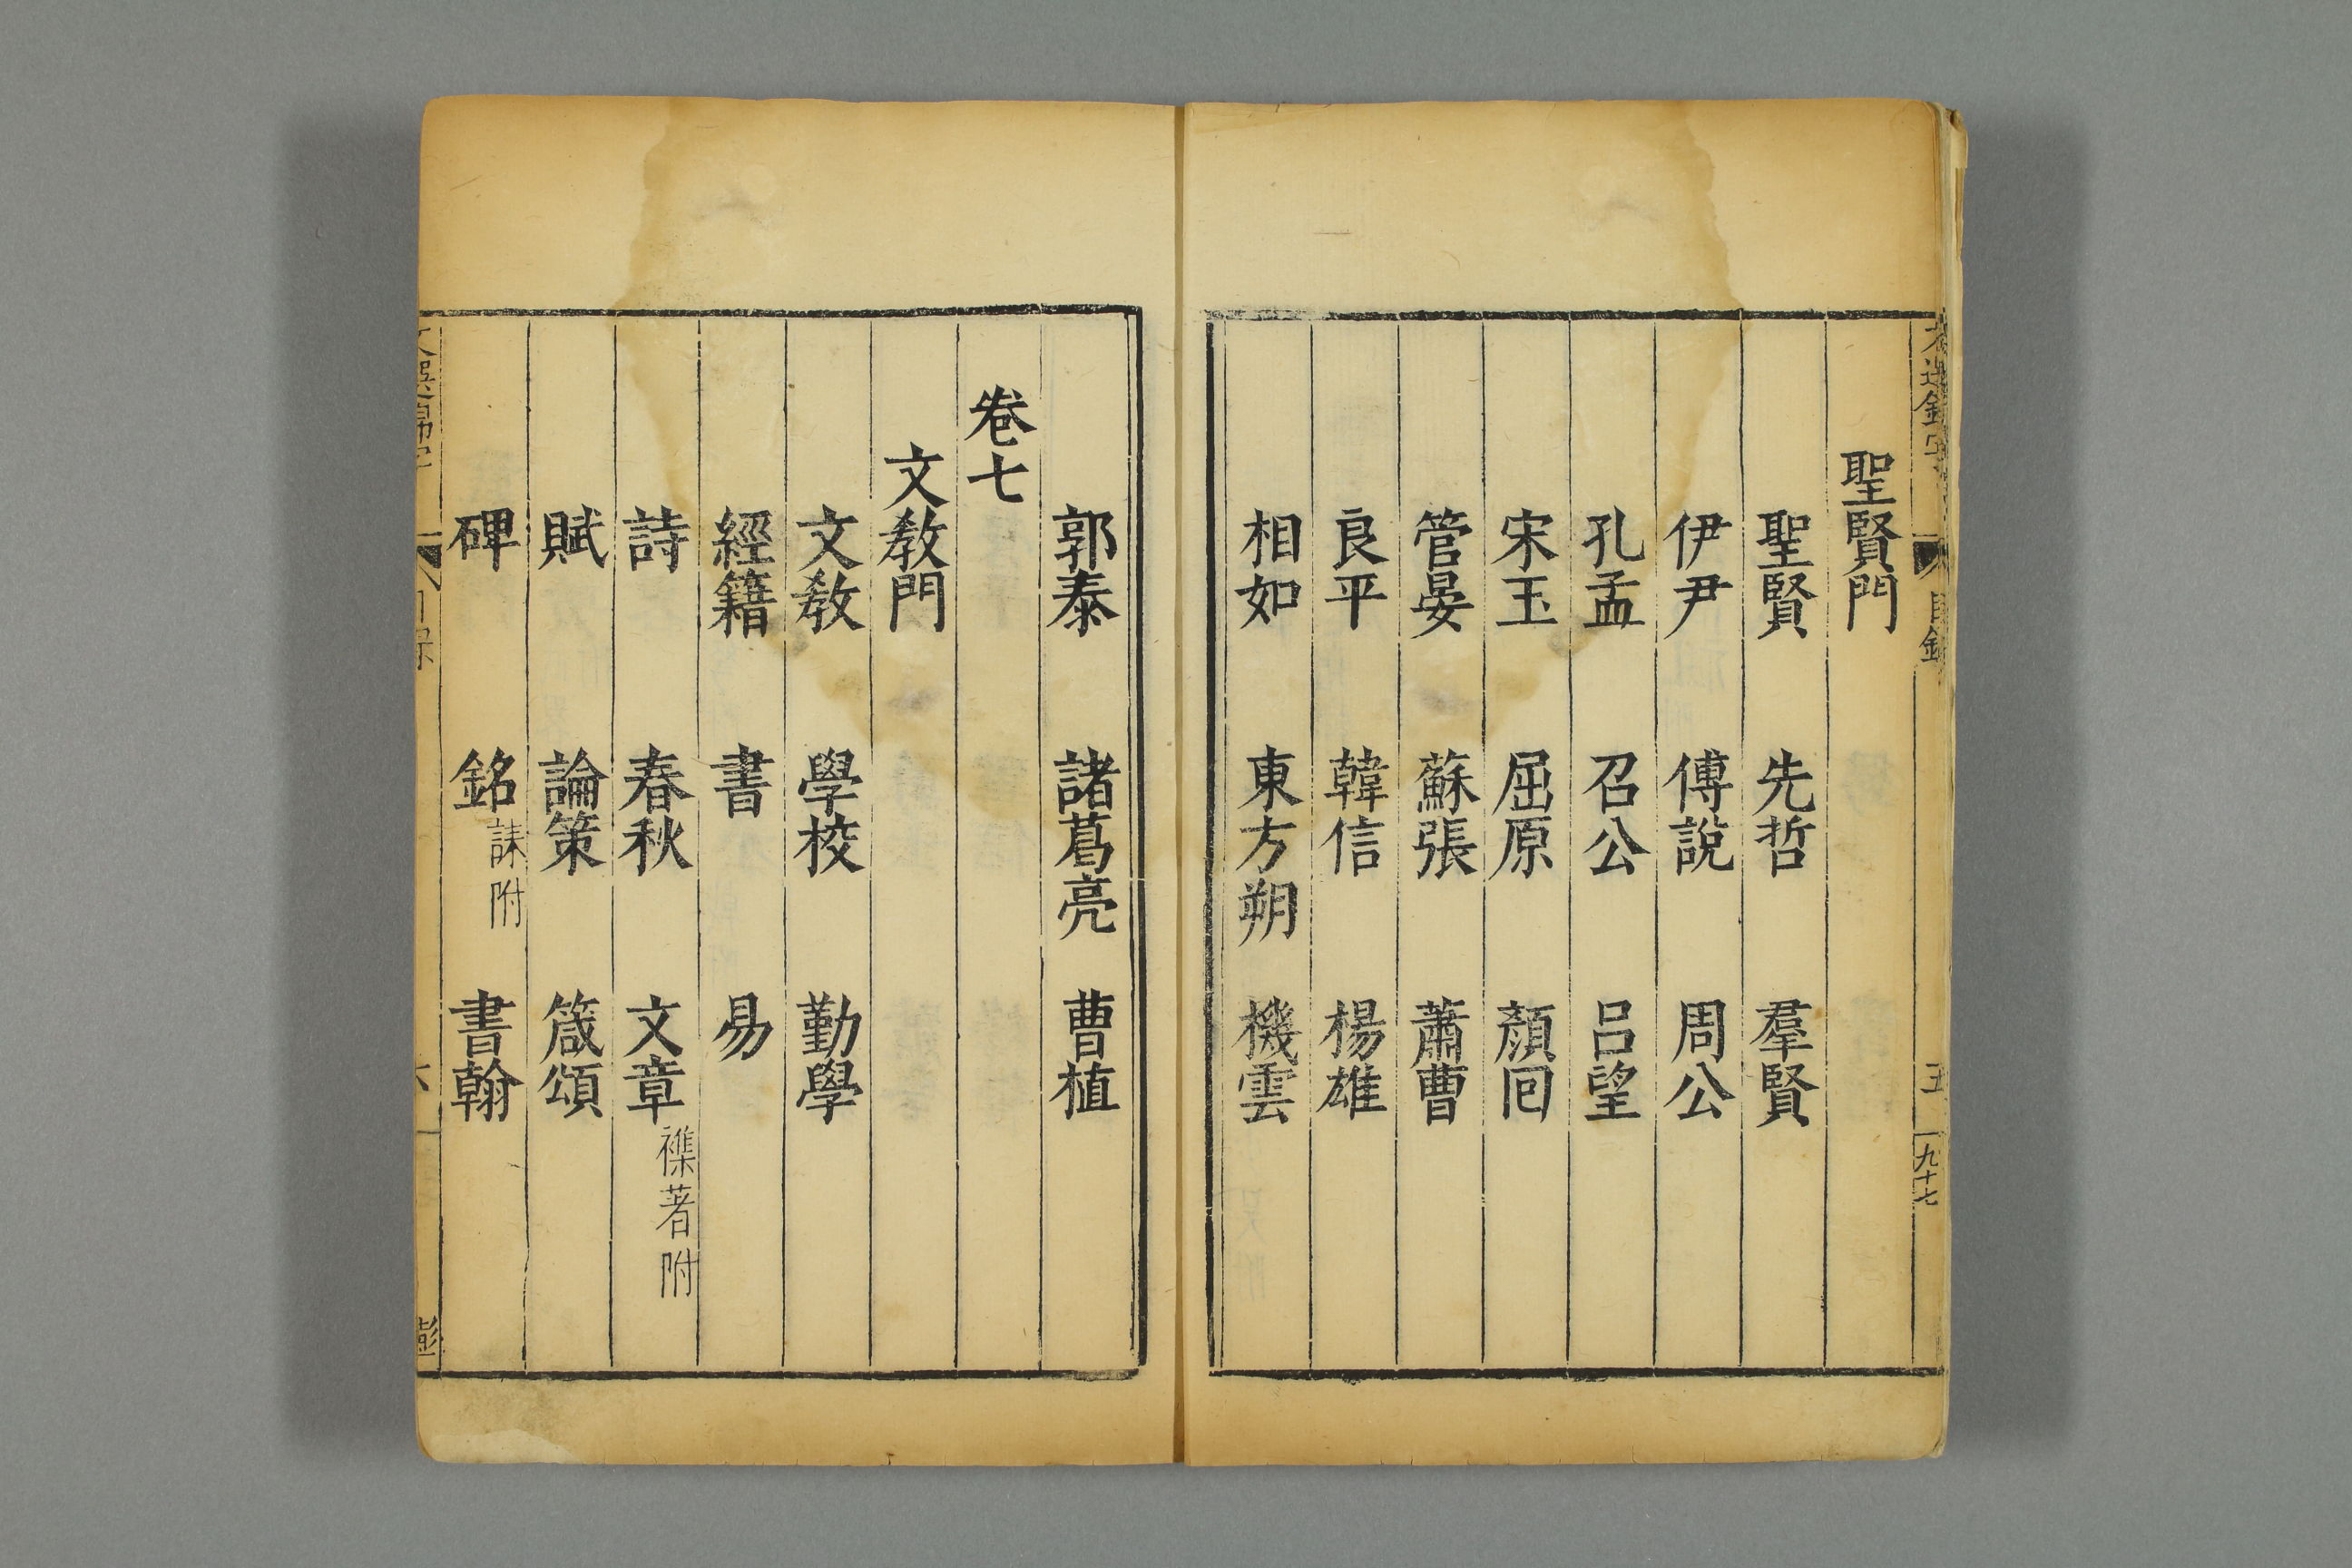 聖賢門
聖賢 先哲 羣賢
伊尹 傅說 周公
孔孟 召公 呂望
宋玉 屈原 顏囘
管晏 蘇張 蕭曹
良平 韓信 楊雄
相如 東方朔 機雲
郭泰 諸葛亮 曹植
卷七
文教門
文教 學校 勤學
經籍 書 易
詩 春秋 文章 襍著附
賦 論策 箴頌
碑 銘 誄附 書翰
目錄 五 九十七